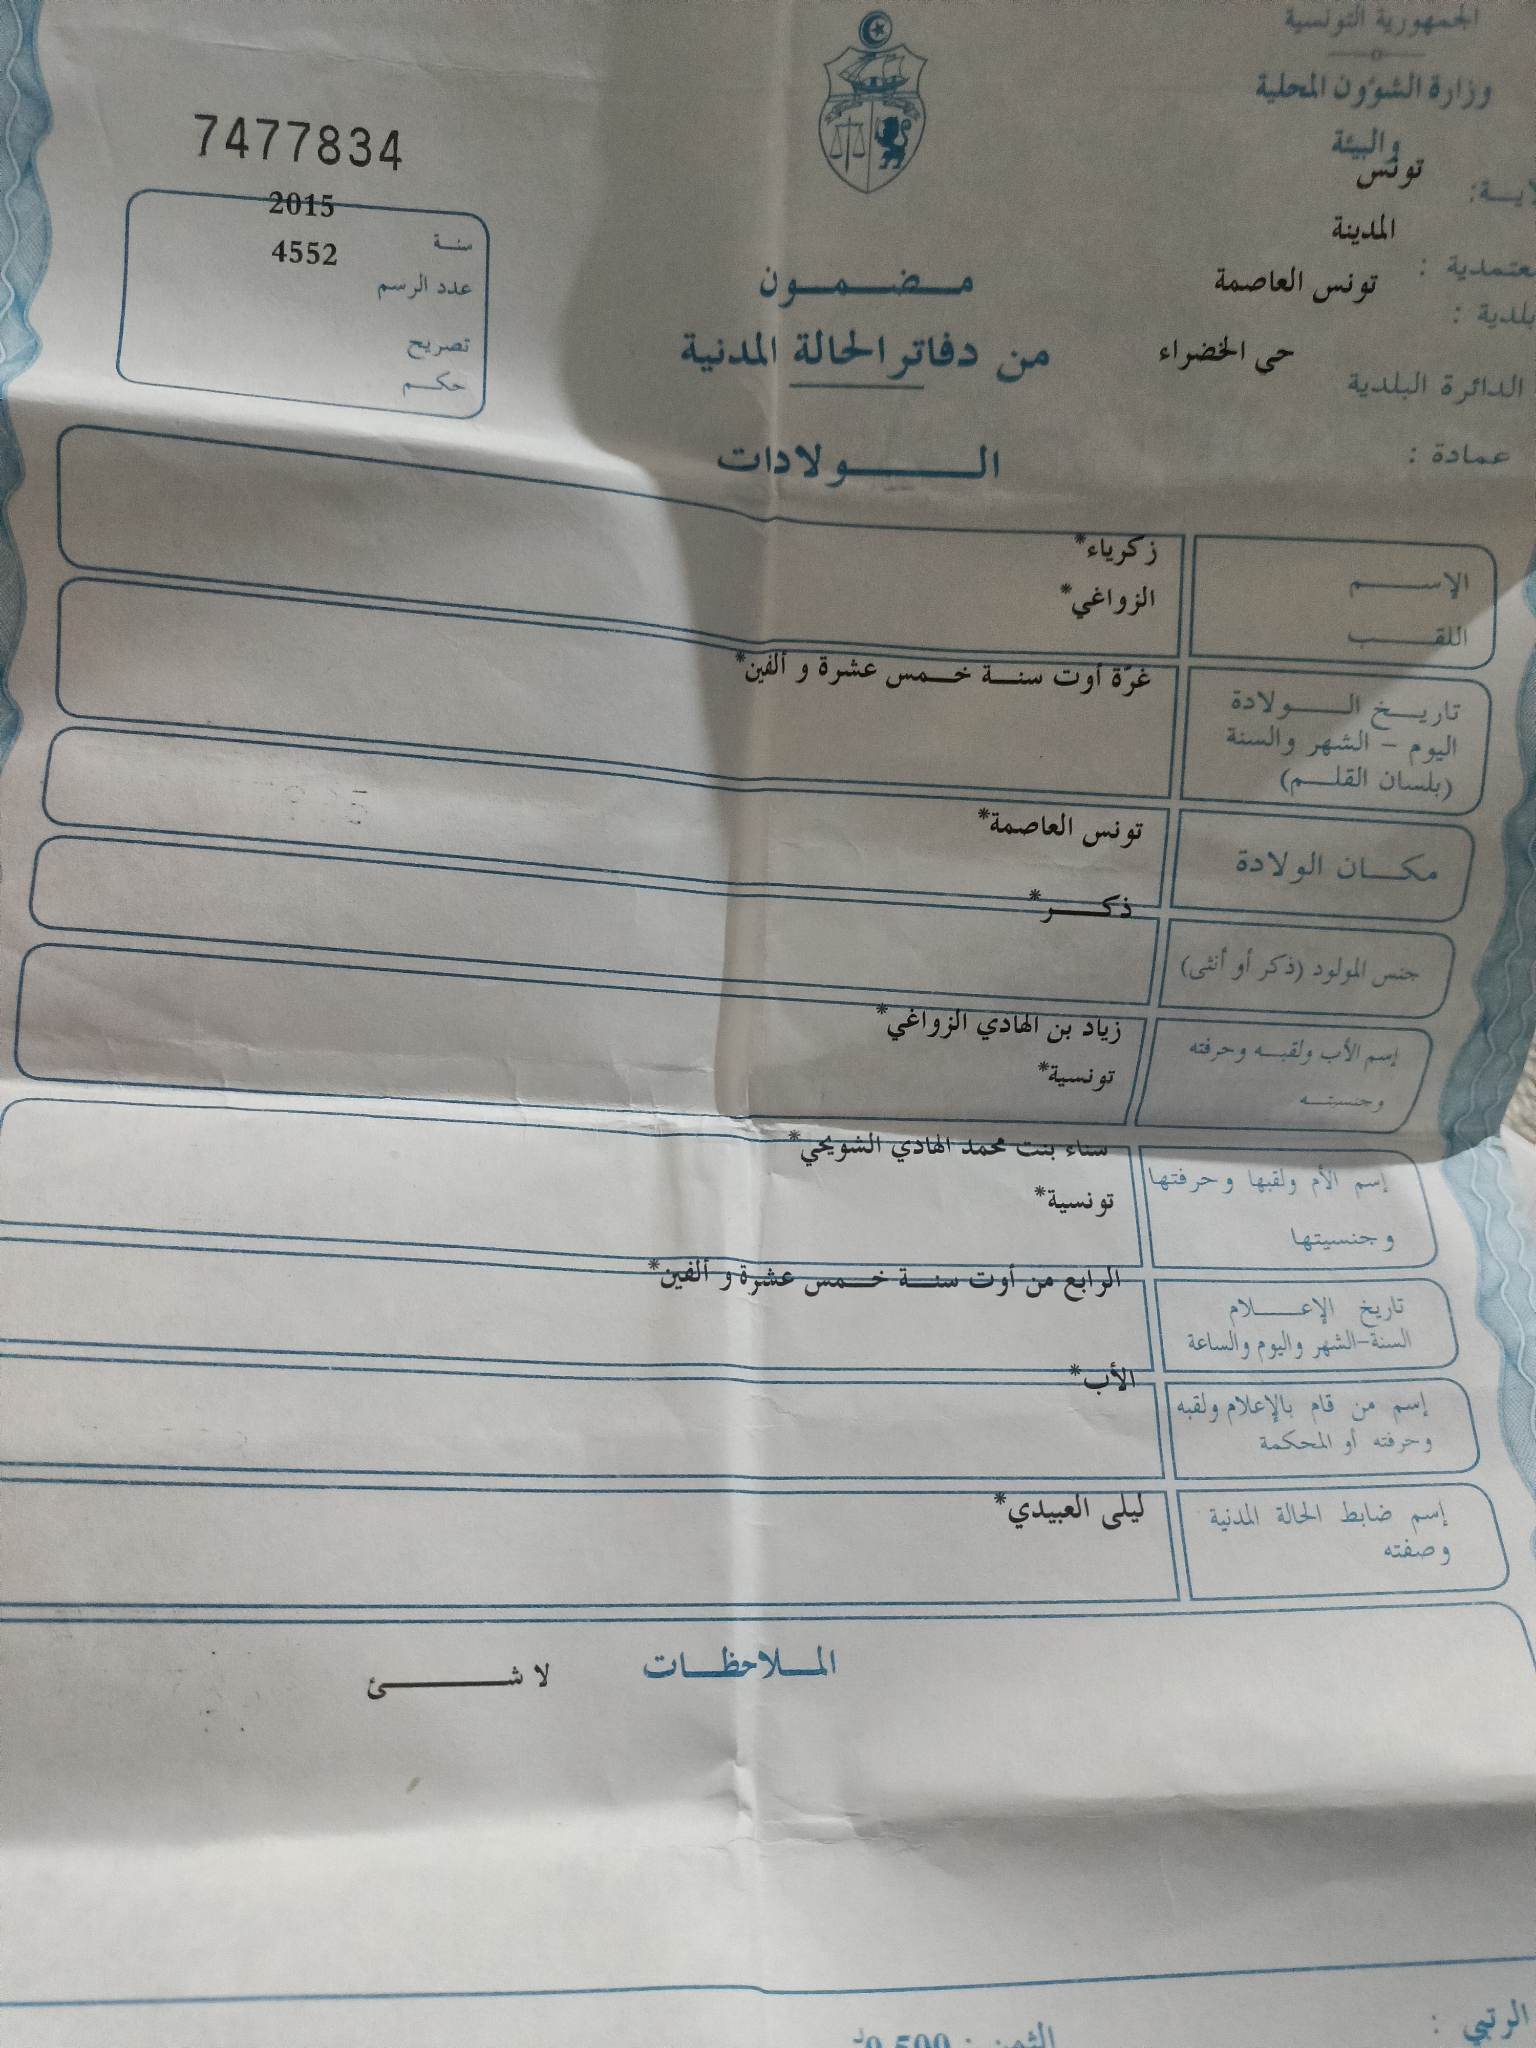 الجمهورية التونسية
وزارة الشؤون المحلية
والبيئة
تونس
المدينة
معتمدية :
تونس العاصمة
بلدية :
حي الخضراء
الدائرة البلدية
عمادة :
7477834
2015
سنة
4552
عدد الرسم
تصريح
حكم
مضمون
من دفاتر الحالة المدنية
الولادات
الإسم
زكرياء*
اللقب
الزواغي*
تاريخ الولادة
اليوم - الشهر والسنة
(بلسان القلم)
غرّة أوت سنة خمس عشرة و ألفين*
مكان الولادة
تونس العاصمة*
جنس المولود (ذكر أو أنثى)
ذكر*
إسم الأب ولقبه وحرفته
وجنسيته
زياد بن الهادي الزواغي*
تونسية*
إسم الأم ولقبها وحرفتها
وجنسيتها
سناء بنت محمد الهادي الشويحي*
تونسية*
تاريخ الإعلام
السنة-الشهر واليوم والساعة
الرابع من أوت سنة خمس عشرة و ألفين*
إسم من قام بالإعلام ولقبه
وحرفته أو المحكمة
الأب*
إسم ضابط الحالة المدنية
وصفته
ليلى العبيدي*
الملاحظات
لا شئ
الرتبي :
الثمن : 0,500 د